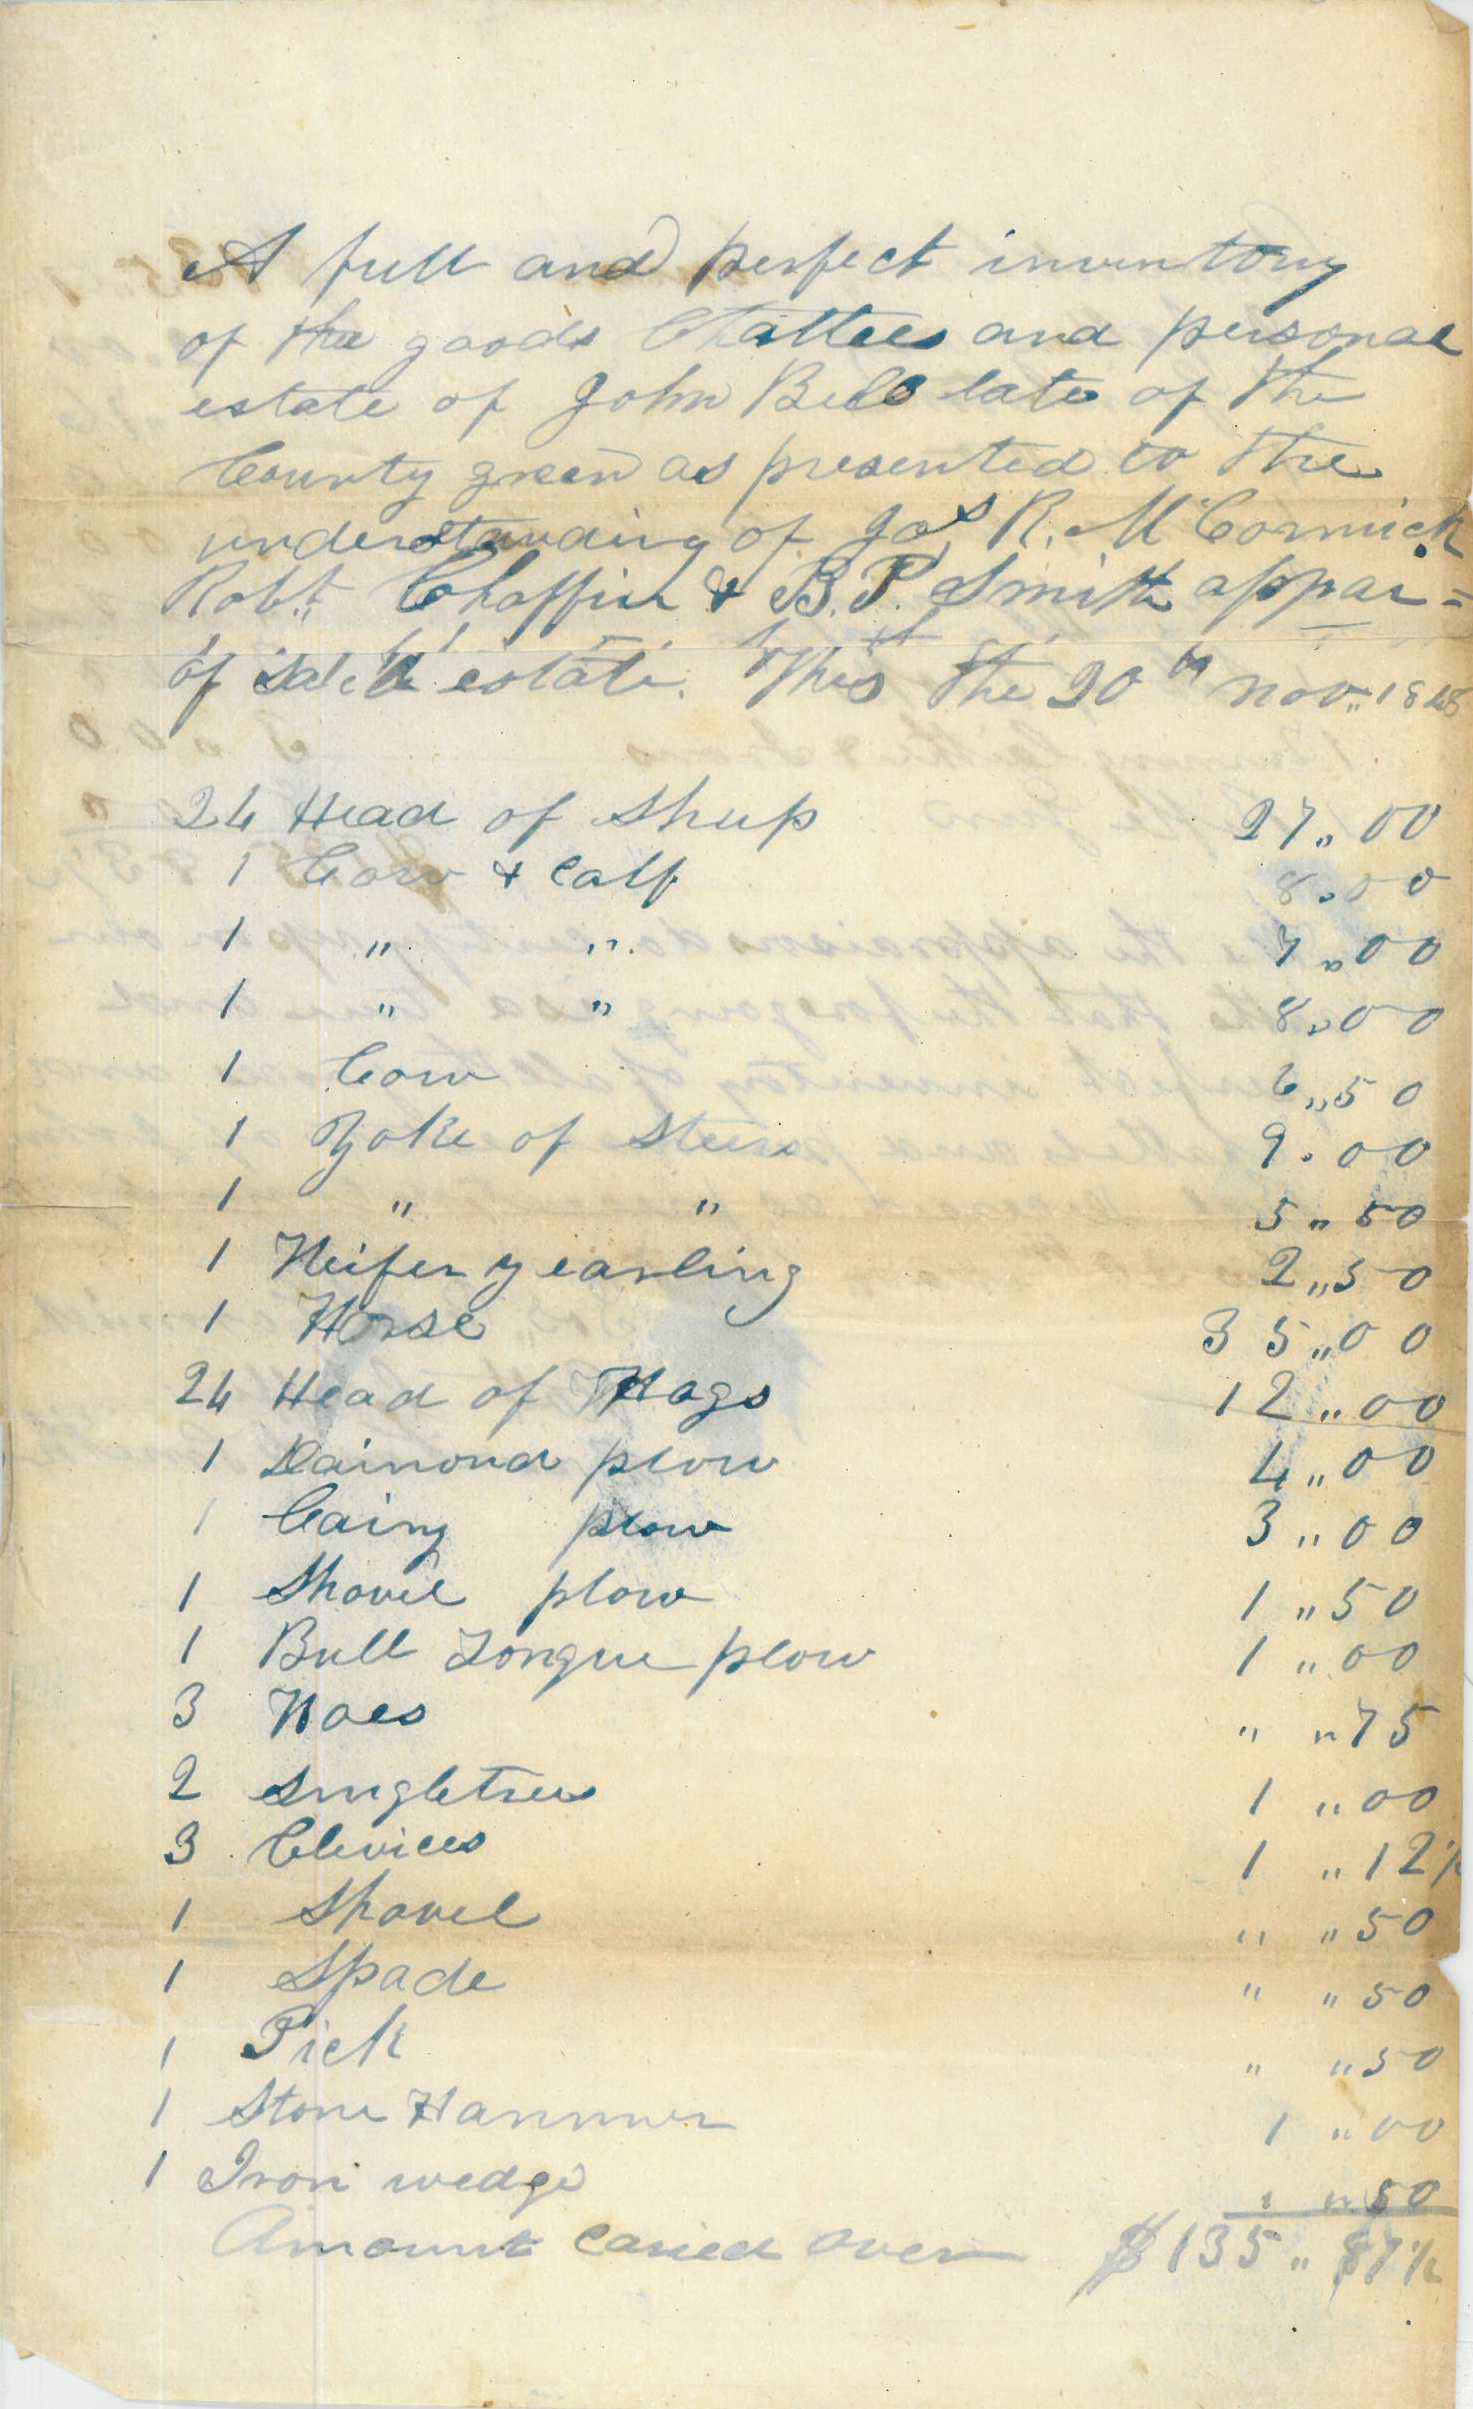 A full and perfect inventory
of the goods Chattles and personal
estate of John Bell late of the
County green as presented to the
understanding of Jas R. McCormick
Robt. Chaffin & B. P. Smith appai=
of said estate. This the 20th nov. 1848
24 Head of Sheep 27,,00
1 Cow & Calf 8,00
1 " " 7,,00
1 " " 8,,00
1 Cow 6,,50
1 Yoke of Steers 9.00
1 " " 5,,50
1 Heifer yearling 2,,50
1 Horse 35,,00
24 Head of Hogs 12,,00
1 Daimond plow 4,,00
1 Cairy plow 3,,00
1 Shovel plow 1,,50
1 Bull Tongue plow 1,,00
3 Hoes " ,,75
2 Singletrees 1,,00
3 Clevices 1,,12 1/2
1 Shovel " ,,50
1 Spade " ,,50
1 Pick " ,,50
1 Stone Hammer 1,,00
1 Iron wedge " ,,50
Amount caried over $135,,87 1/2